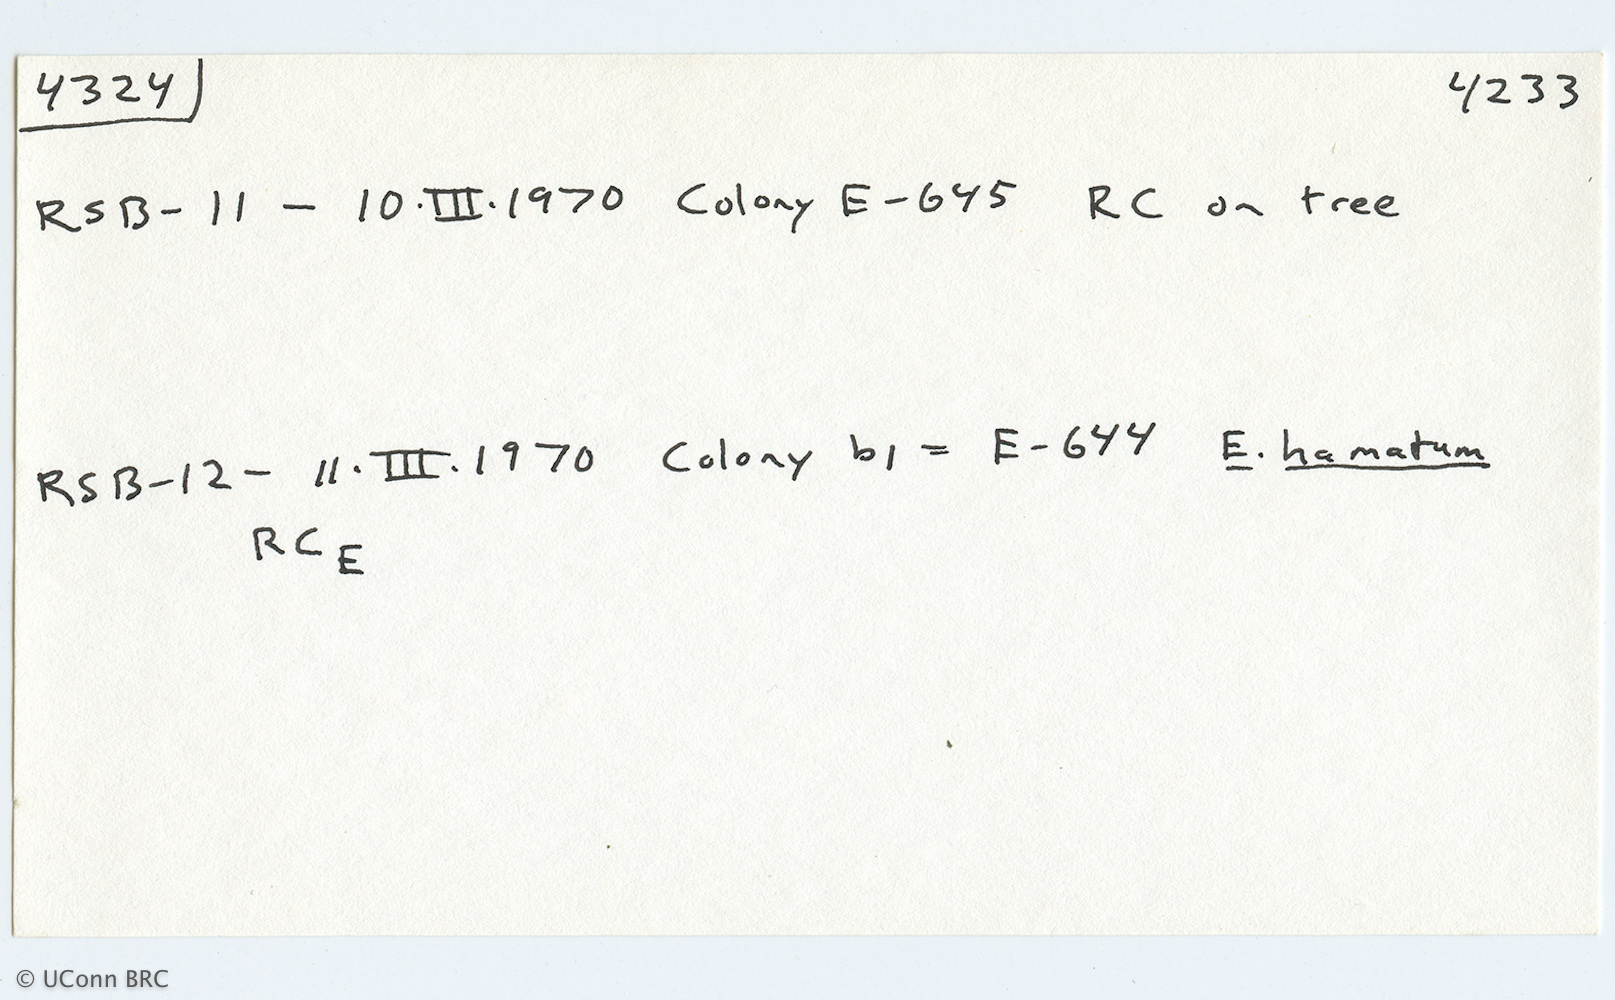 4324
4233
RSB-11 - 10.III.1970 Colony E-645 RC on tree
RSB-12- 11.III.1970 Colony b1 = E-644 E. hamatum
RC E
© UConn BRC